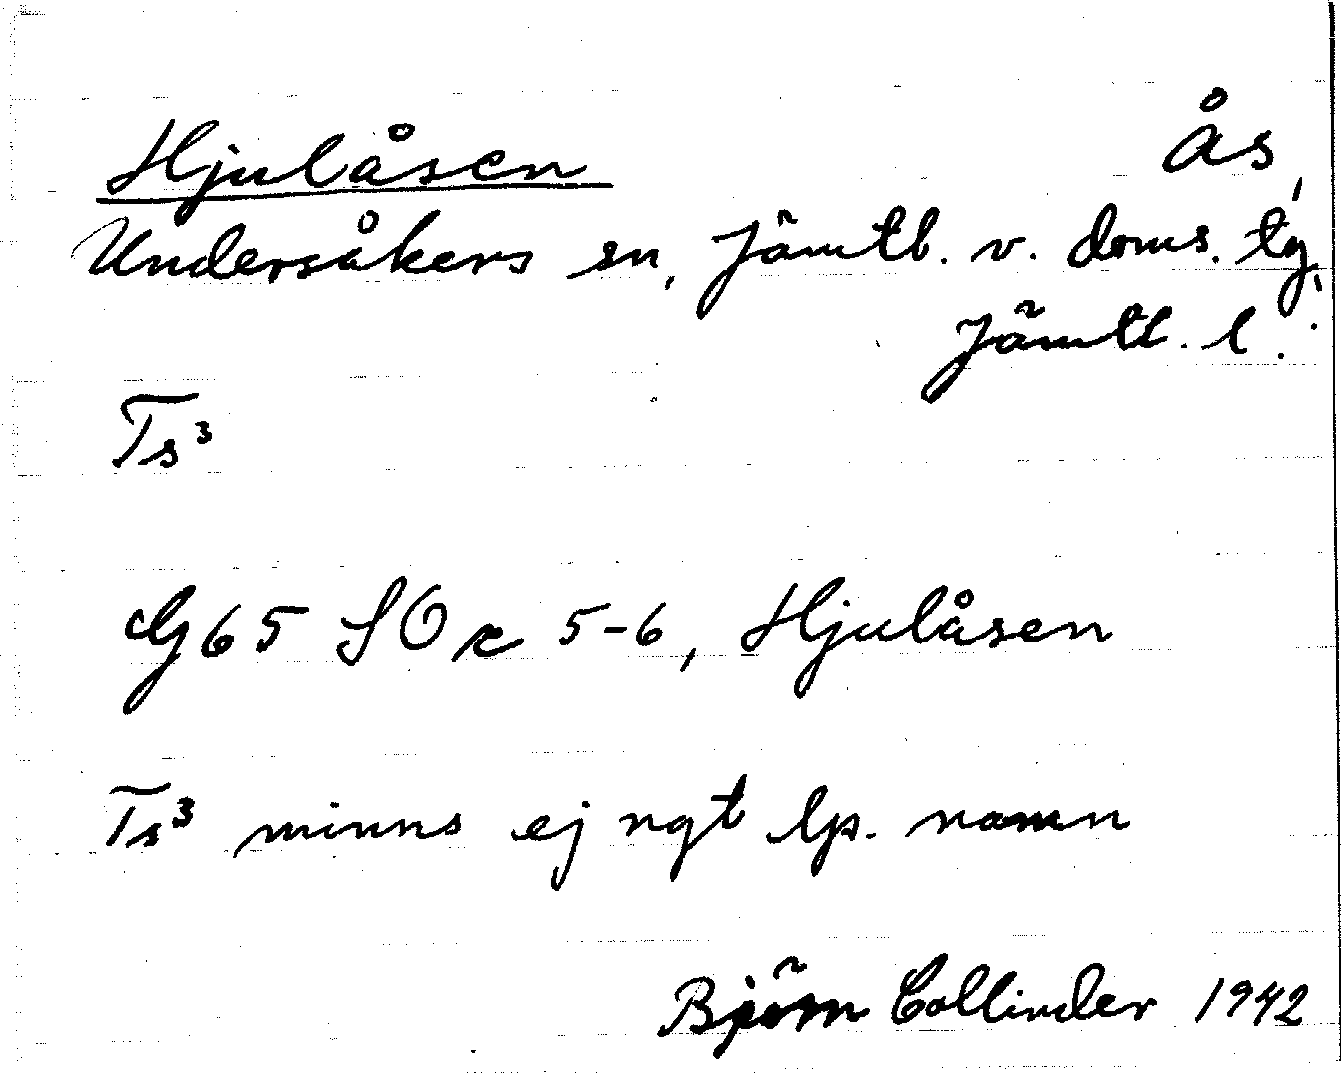 Hjulåsen Ås
Undersåkers sn, Jämtl. v. doms. tg,
Jämtl. l.
Ts³
G 65 SO x 5-6, Hjulåsen
Ts³ minns ej ngt lp. namn
Björn Collinder 1942